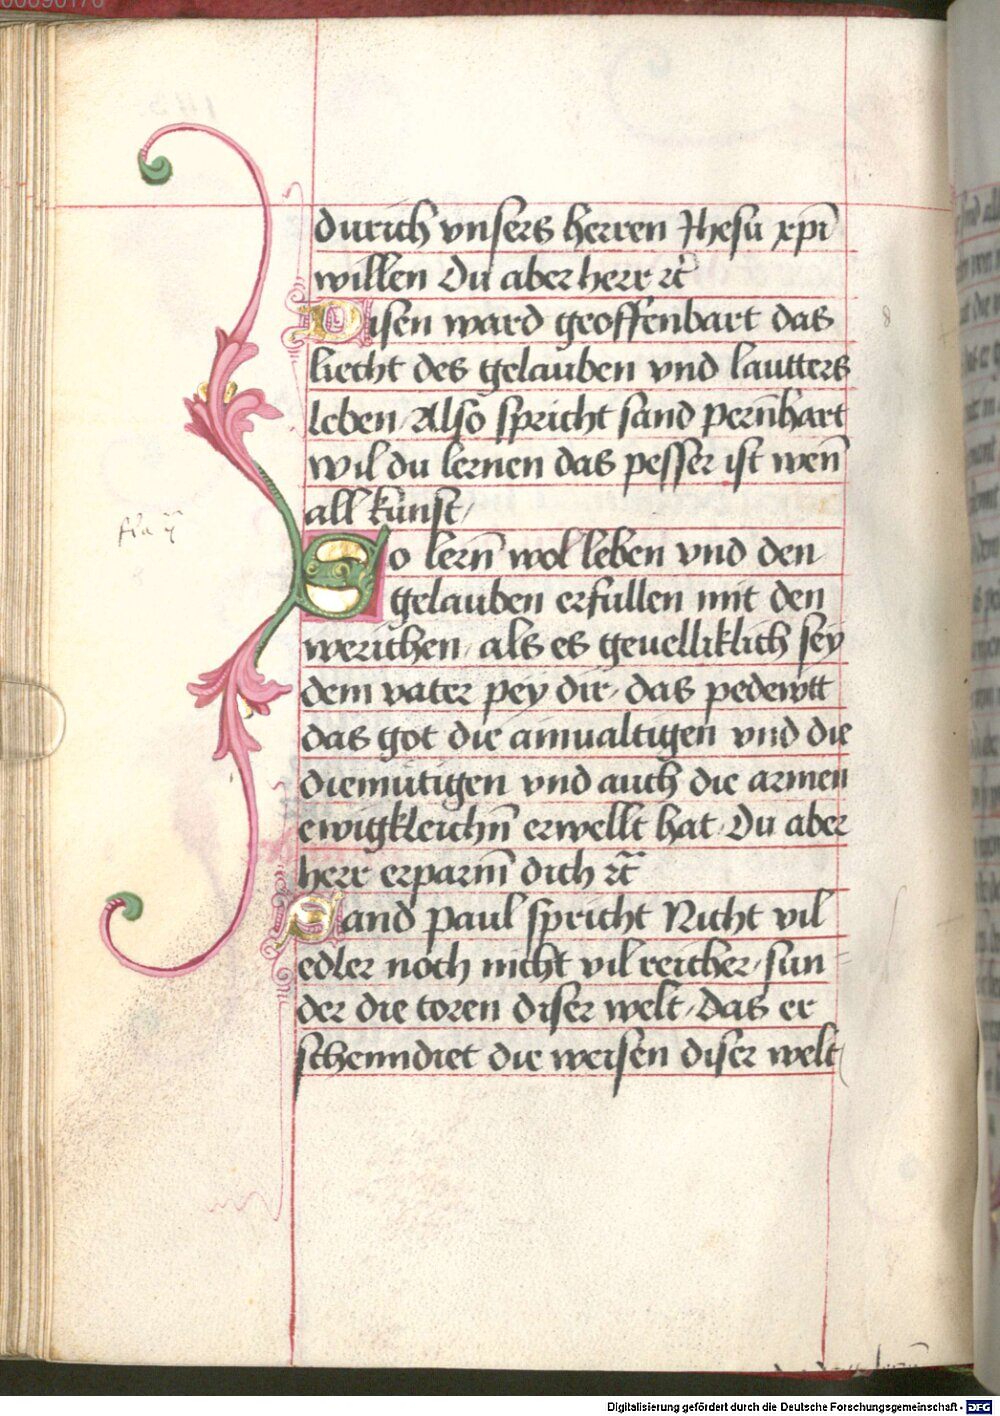 durich vnsers herren Jhesu xpi
willen Du aber herr rc
Disen ward geoffenbart das
liecht des gelauben vnd lautters
leben Also spricht sand pernhart
wil du lernen das pesser ist wen̄
all kunst /
So lern̄ wol leben vnd den
gelauben erfullen mit den
werichen als es geuelliklich sey
dem vater pey dir das pedewtt
das got die ainualtigen vnd die
diemutigen vnd auch die armen
ewigkleichn̄ erwellt hat Du aber
herr erparm̄ dich rc
Sand Paul spricht Nicht vil
edler noch nicht vil reicher sun
der die toren diser welt das er
schenndiet die weisen diser welt
Digitalisierung gefördert durch die Deutsche Forschungsgemeinschaft - DFG